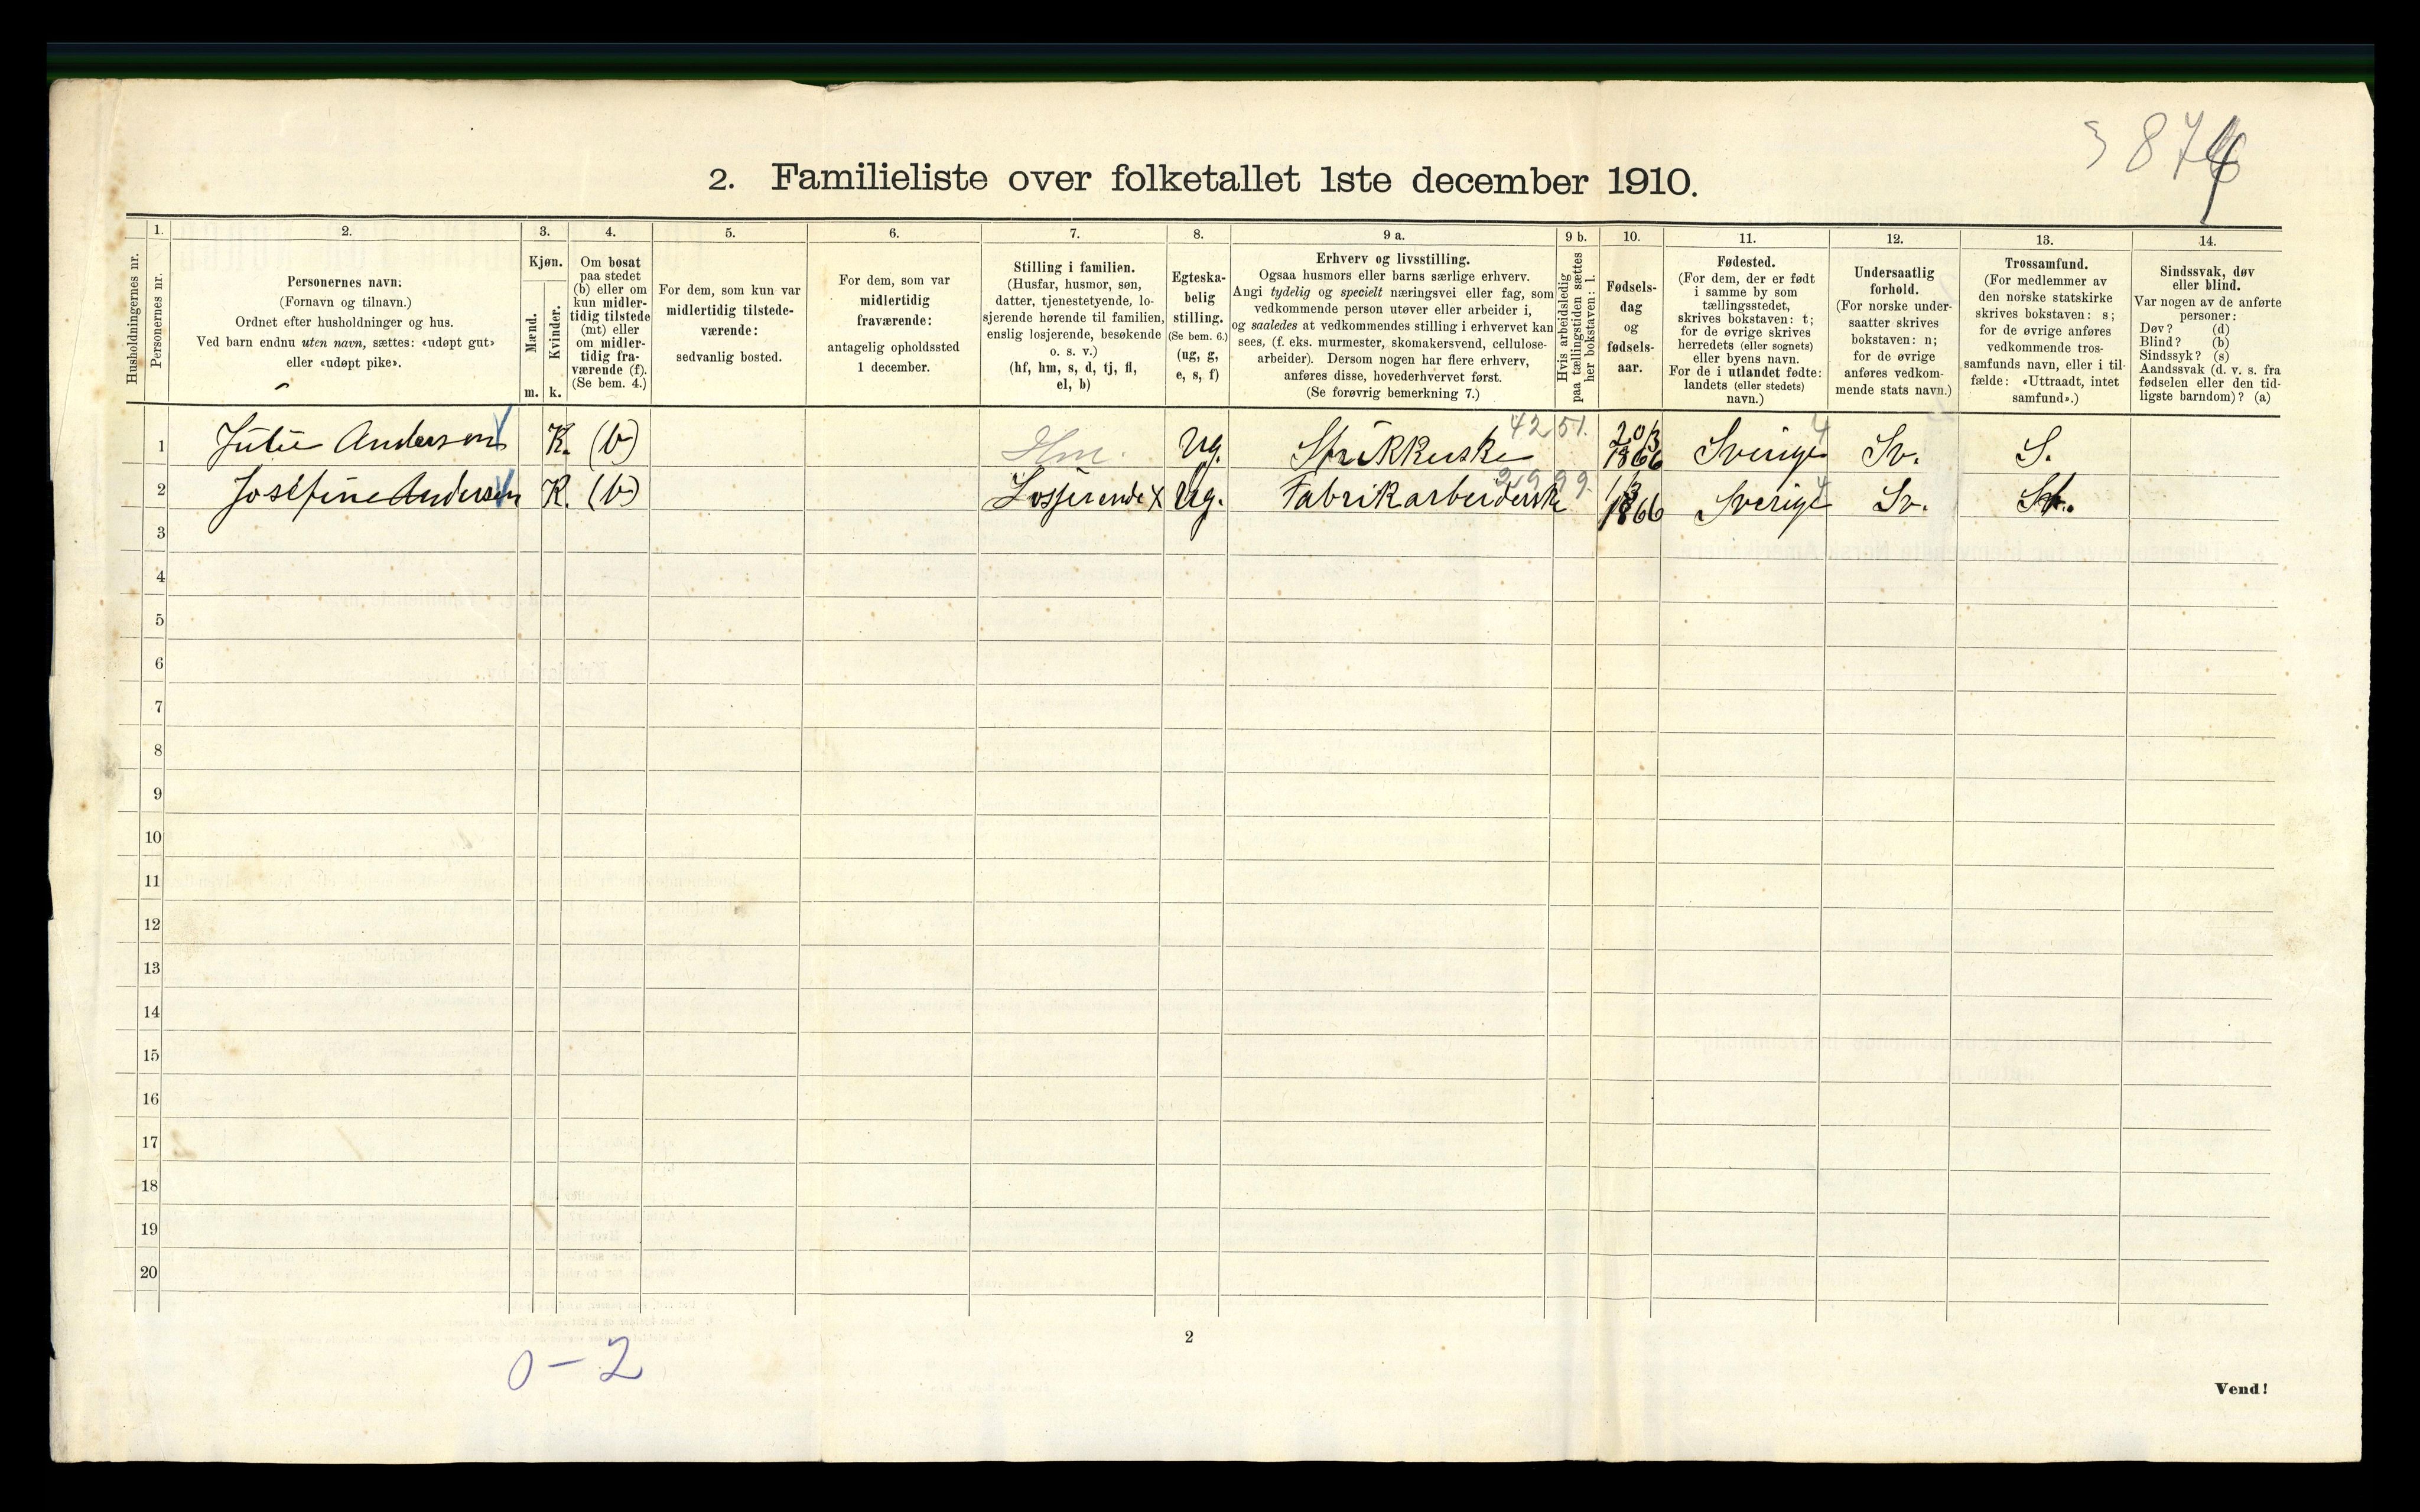 3874
2. Familieliste over folketallet 1ste december 1910.
Husholdningernes nr.
1.
Personernes nr.
2.
Personernes navn:
(Fornavn og tilnavn.)
Ordnet efter husholdninger og hus.
Ved barn endnu uten navn, sættes: «udøpt gut»
eller «udøpt pike».
3.
Kjøn.
Mænd.
Kvinder.
m. k.
4.
Om bosat
paa stedet
(b) eller om
kun midler-
tidig tilstede
(mt) eller
om midler-
tidig fra-
værende (f).
(Se bem. 4.)
5.
For dem, som kun var
midlertidig tilstede-
værende:
sedvanlig bosted.
6.
For dem, som var
midlertidig
fraværende:
antagelig opholdssted
1 december.
7.
Stilling i familien.
(Husfar, husmor, søn,
datter, tjenestetyende, lo-
sjerende hørende til familien,
enslig losjerende, besøkende
o. s. v.)
(hf, hm, s, d, tj, fl,
el, b)
8.
Egteska-
belig
stilling.
(Se bem. 6.)
(ug, g,
e, s, f)
9 a.
Erhverv og livsstilling.
Ogsaa husmors eller barns særlige erhverv.
Angi tydelig og specielt næringsvei eller fag, som
vedkommende person utøver eller arbeider i,
og saaledes at vedkommendes stilling i erhvervet kan
sees, (f. eks. murmester, skomakersvend, cellulose-
arbeider). Dersom nogen har flere erhverv,
anføres disse, hovederhvervet først.
(Se forøvrig bemerkning 7.)
9 b.
Hvis arbeidsledig
paa tællingstiden sættes
her bokstaven: l.
10.
Fødsels-
dag
og
fødsels-
aar.
11.
Fødested.
(For dem, der er født
i samme by som
tællingsstedet,
skrives bokstaven: t;
for de øvrige skrives
herredets (eller sognets)
eller byens navn.
For de i utlandet fødte:
landets (eller stedets)
navn.)
12.
Undersaatlig
forhold.
(For norske under-
saatter skrives
bokstaven: n;
for de øvrige
anføres vedkom-
mende stats navn.)
13.
Trossamfund.
(For medlemmer av
den norske statskirke
skrives bokstaven: s;
for de øvrige anføres
vedkommende tros-
samfunds navn, eller i til-
fælde: «Uttraadt, intet
samfund».)
14.
Sindssvak, døv
eller blind.
Var nogen av de anførte
personer:
Døv? (d)
Blind? (b)
Sindssyk? (s)
Aandssvak (d. v. s. fra
fødselen eller den tid-
ligste barndom)? (a)
1 Julie Anderson K. (b) Hm. Ug. Strikkerske 4251. 20/3 1866 Sverige 4 Sv. S.
2 Josefine Anderson K. (b) Losjerende X Ug. Fabrikarbeiderske 29 99. 1/3 1866 Sverige 4 Sv.
3
4
5
6
7
8
9
10
11
12
13
14
15
16
17
18
19
20
2
0-2
Vend!